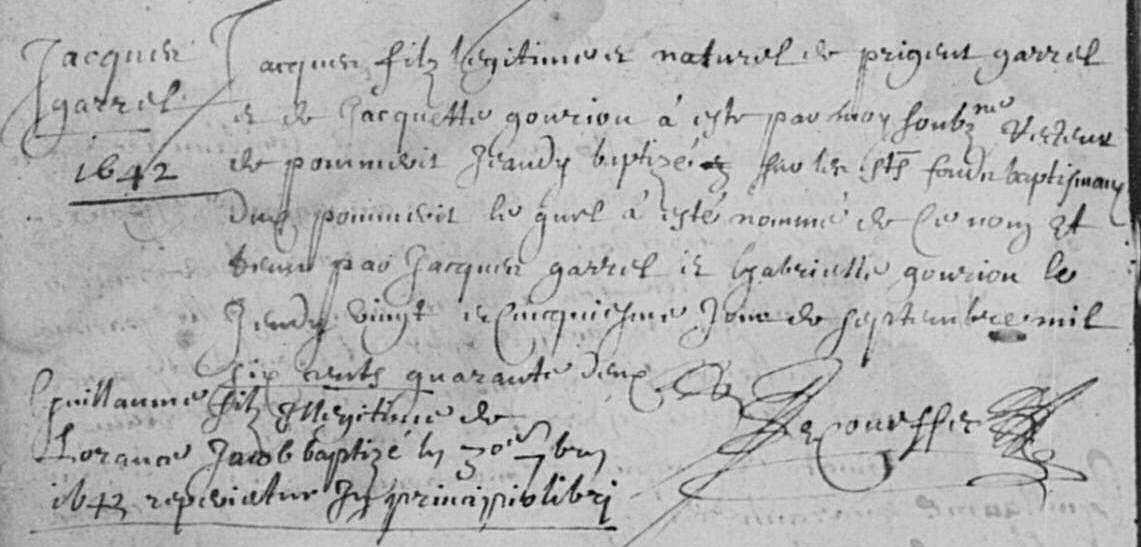 Jacques
garrel
1642
Jacques filz legitime et naturel de prigent garrel
et de Jacquette gouriou à esté par moy soubzne Victeur
de pommerit Jeaudy baptizé sur les sts fonds baptismaux
dud pommerit le quel à esté nommé de ce nom Et
tenu par Jacques garrel et Gabrielle gouriou le
Jeudy vingt et cincquiesme Jour de septembre mil
six cents quarante deux
Guillaume filz Illegitime de
Lorance Jacob baptizé le 30e 7bre
1642 reperietur In principio libri